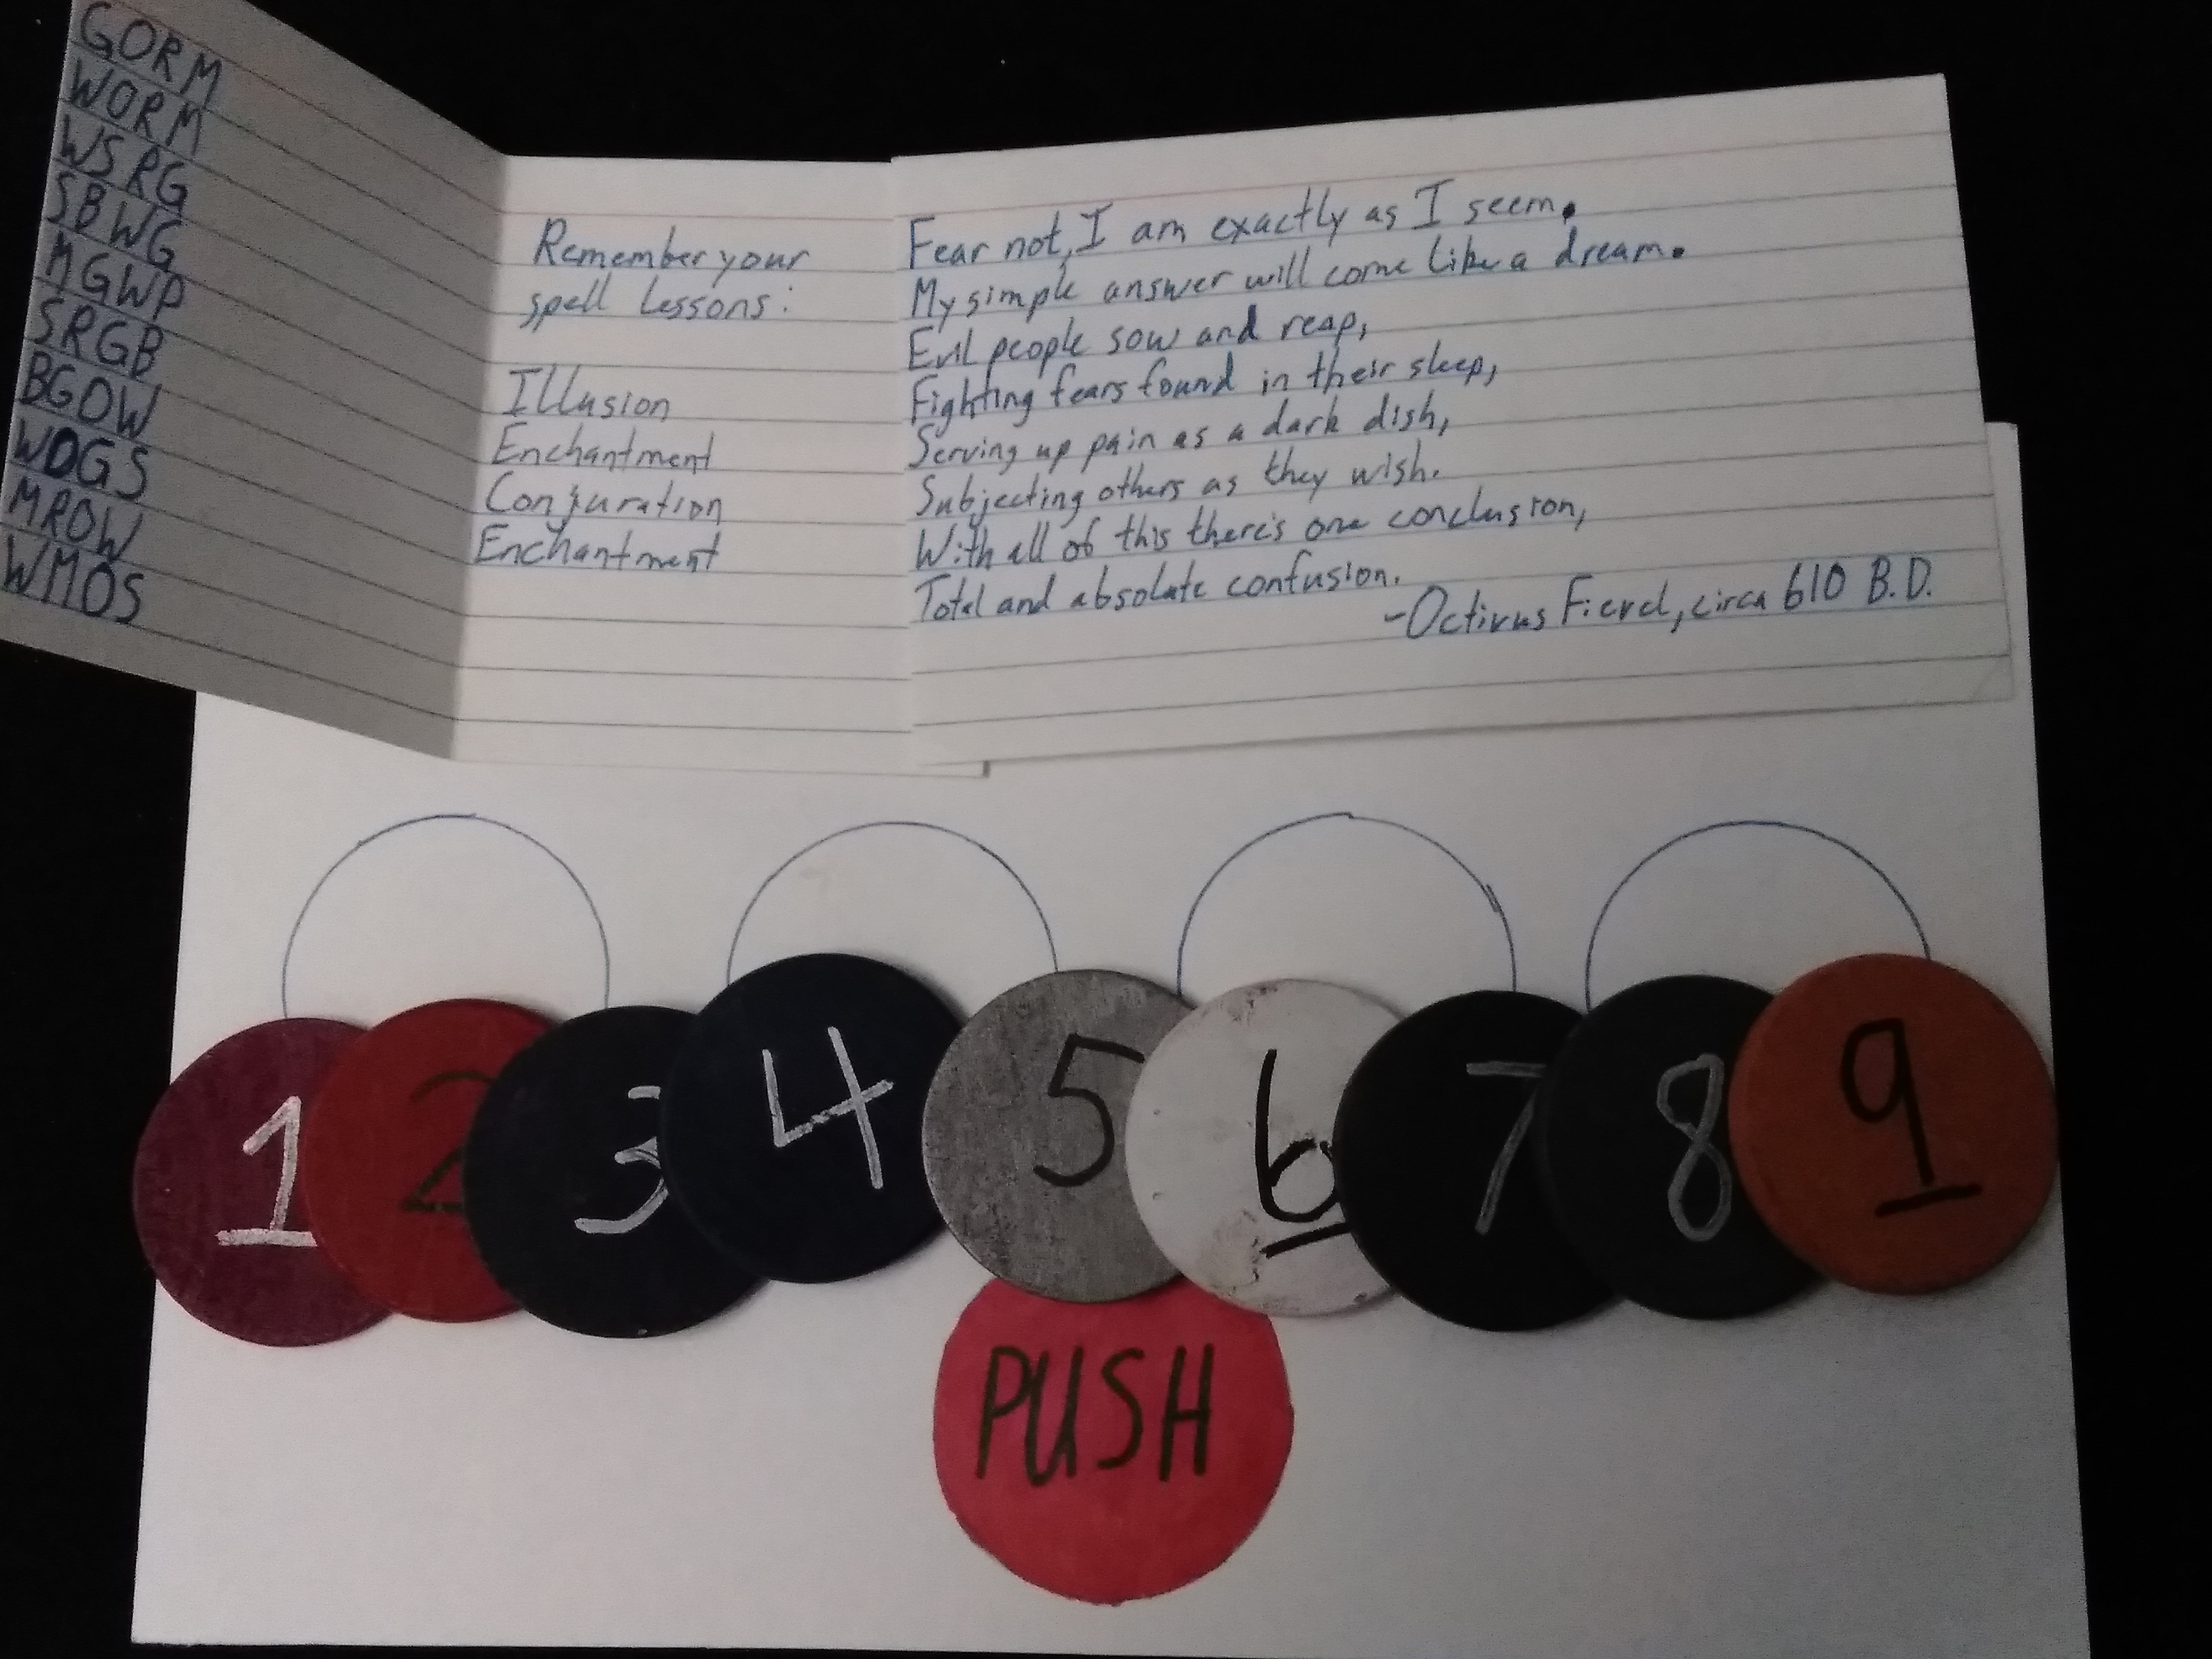 GORM
WORM
WSRG
SBWG
MGWP
SRGB
BGOW
WOGS
MROW
WMOS
Remember your
spell lessons:
Illusion
Enchantment
Conjuration
Enchantment
Fear not, I am exactly as I seem.
My simple answer will come like a dream.
Evil people sow and reap,
Fighting fears found in their sleep,
Serving up pain as a dark dish,
Subjecting others as they wish.
With all of this there's one conclusion,
Total and absolute confusion.
-Octivus Fierel, circa 610 B.D.
1 2 3 4 5 6 7 8 9
PUSH